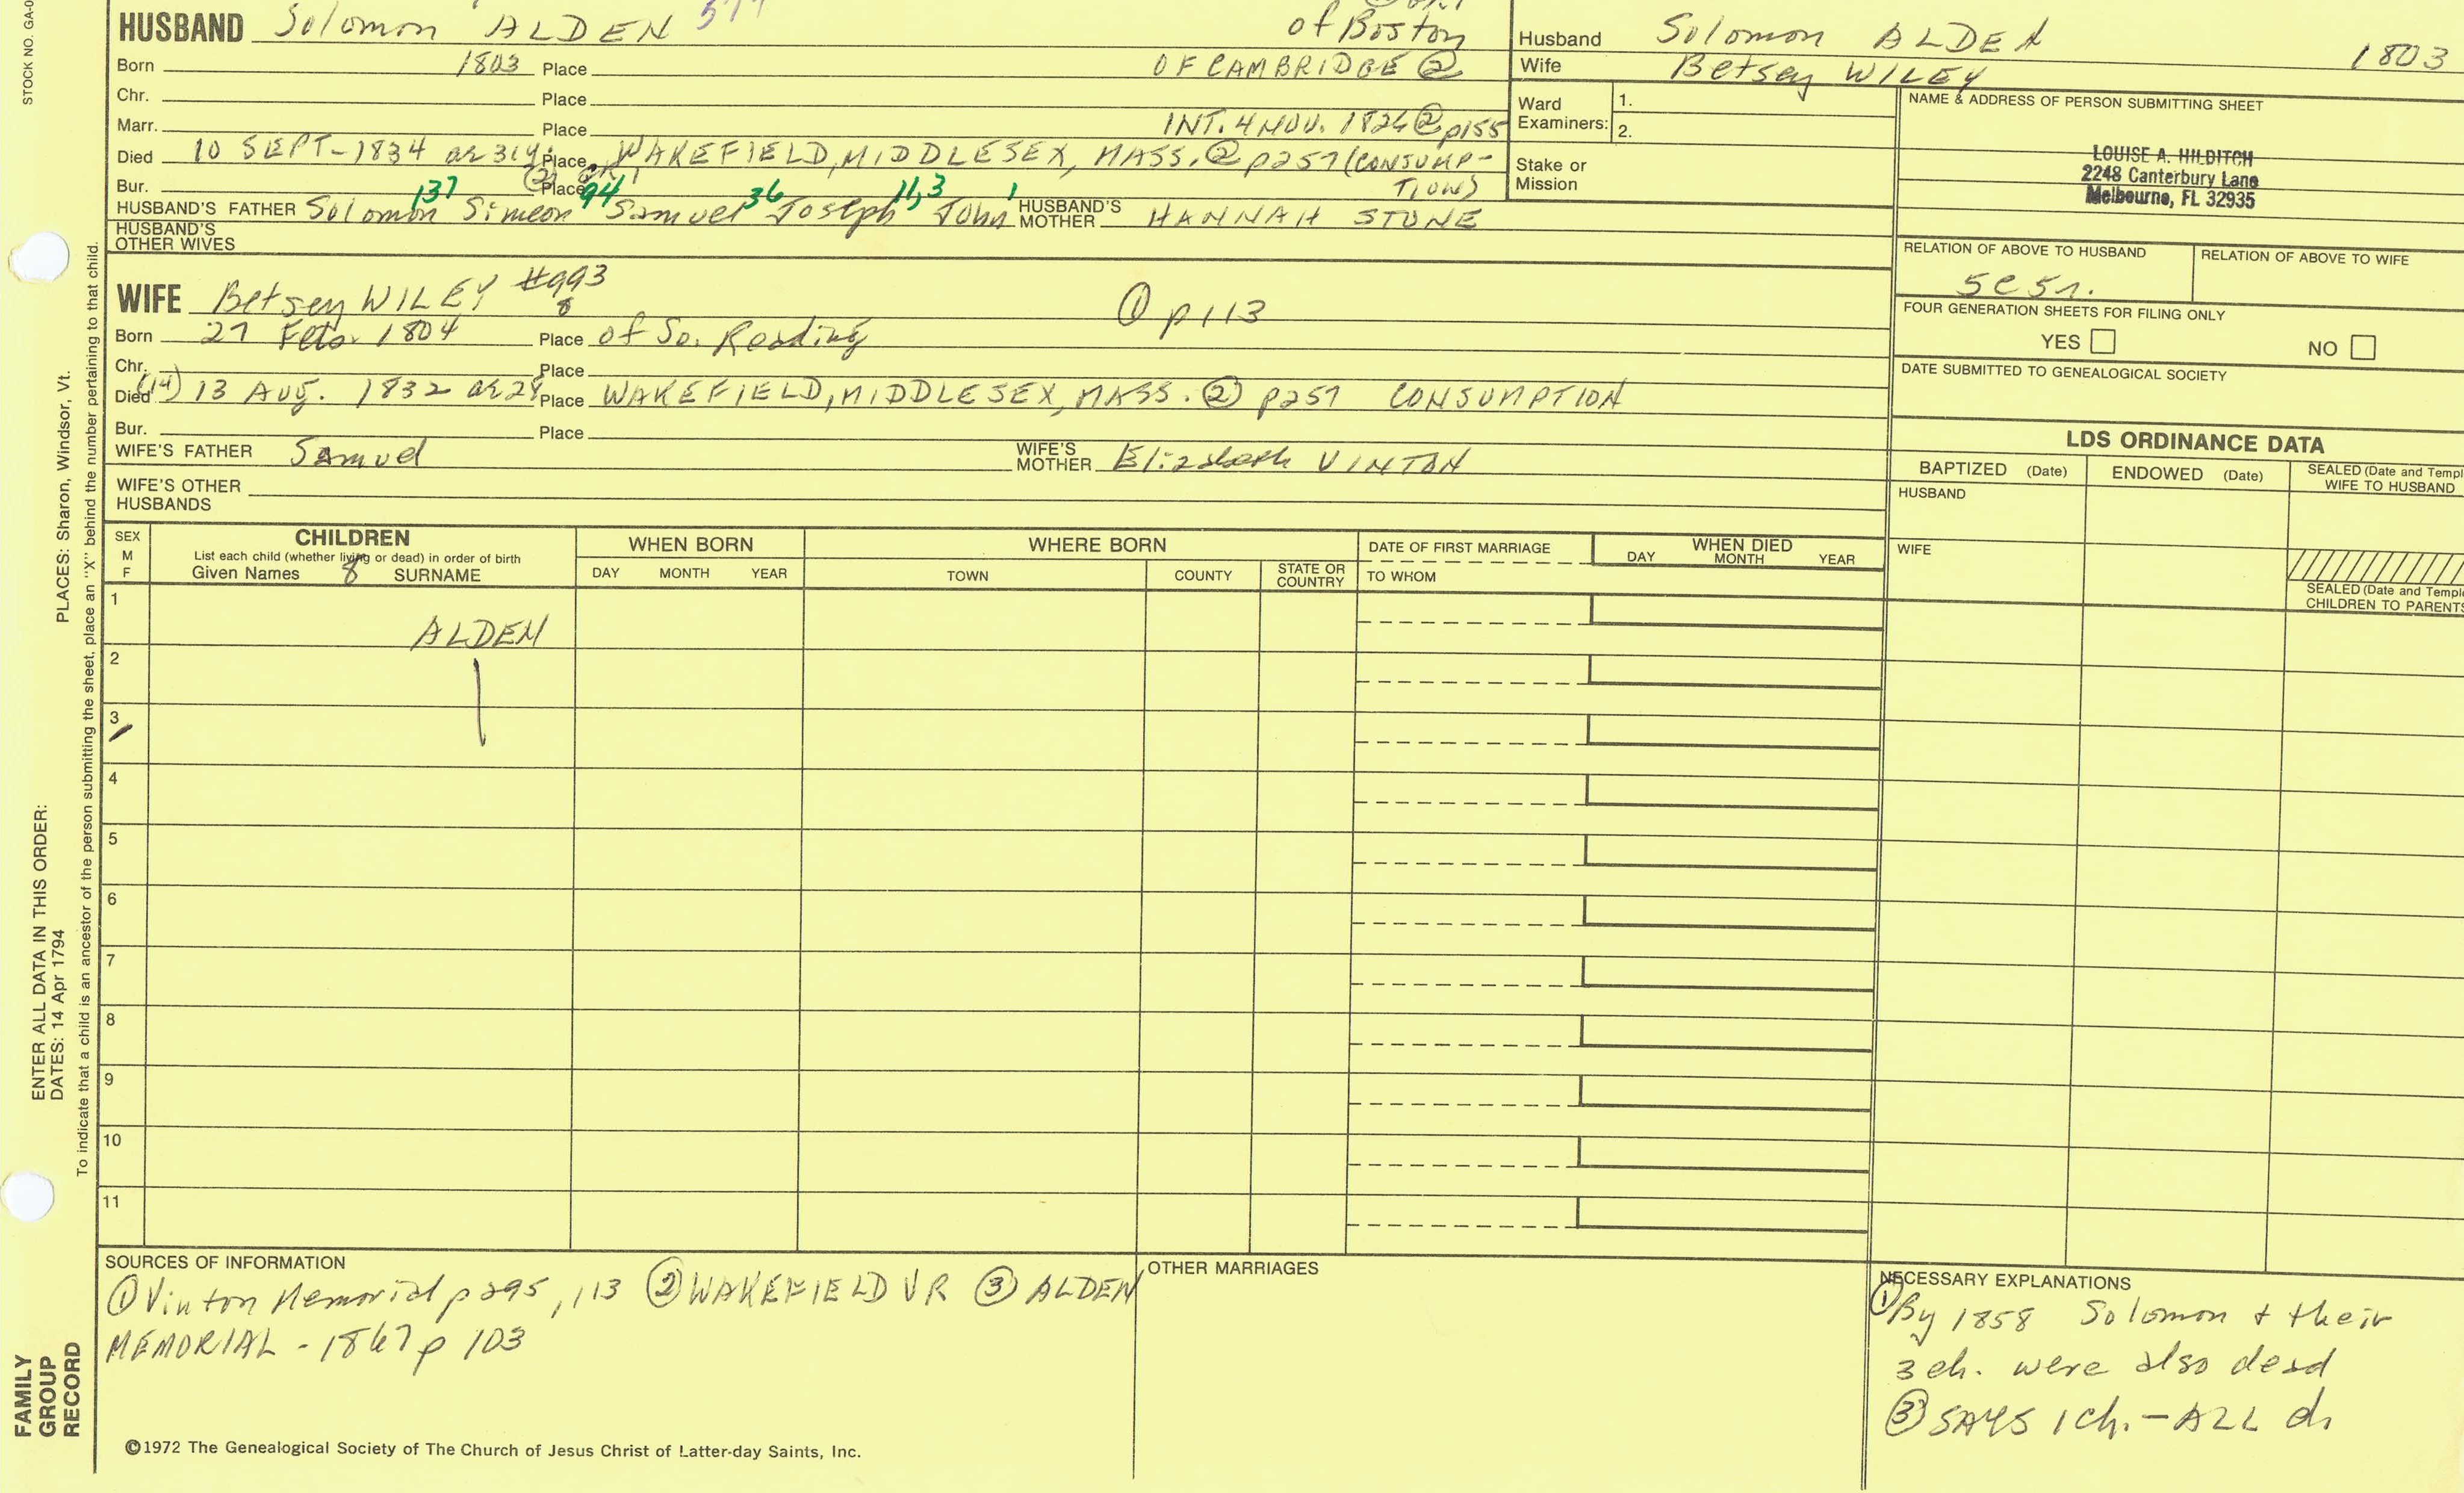 STOCK NO. GA-0
HUSBAND Solomon ALDEN of Boston
Born 1803 Place OF CAMBRIDGE ②
Chr. Place
Marr. Place INT. 4 NOV. 1826 ② p155
Died 10 SEPT-1834 Place WAKEFIELD, MIDDLESEX, MASS. ② p257 (CONSUMP-
Bur. Place TION)
137 94 36 11,3 1
HUSBAND'S FATHER Solomon Simeon Samuel Joseph John HUSBAND'S MOTHER HANNAH STONE
HUSBAND'S OTHER WIVES
WIFE Betsey WILEY #993 ① p113
8
Born 27 Feb. 1804 Place of So. Reading
Chr. Place
Died (14) 13 AUG. 1832 ae 28 Place WAKEFIELD, MIDDLESEX, MASS. ② p257 CONSUMPTION
Bur. Place
WIFE'S FATHER Samuel WIFE'S MOTHER Elizabeth VINTON
WIFE'S OTHER HUSBANDS
Husband Solomon ALDEN 1803
Wife Betsey WILEY
Ward Examiners: 1.
2.
Stake or Mission
NAME & ADDRESS OF PERSON SUBMITTING SHEET
LOUISE A. HILDITCH
2248 Canterbury Lane
Melbourne, FL 32935
RELATION OF ABOVE TO HUSBAND RELATION OF ABOVE TO WIFE
5c5r.
FOUR GENERATION SHEETS FOR FILING ONLY
YES NO
DATE SUBMITTED TO GENEALOGICAL SOCIETY
LDS ORDINANCE DATA
BAPTIZED (Date) ENDOWED (Date) SEALED (Date and Templ
WIFE TO HUSBAND
HUSBAND
WIFE
SEALED (Date and Temple
CHILDREN TO PARENTS
SEX
M
F
CHILDREN
List each child (whether living or dead) in order of birth
Given Names 8 SURNAME
WHEN BORN
DAY MONTH YEAR
WHERE BORN
TOWN COUNTY STATE OR COUNTRY
DATE OF FIRST MARRIAGE
TO WHOM
WHEN DIED
DAY MONTH YEAR
1 ALDEN
2
3
4
5
6
7
8
9
10
11
SOURCES OF INFORMATION
① Vinton Memorial p295, 113 ② WAKEFIELD VR ③ ALDEN
MEMORIAL - 1867 p 103
OTHER MARRIAGES
NECESSARY EXPLANATIONS
① By 1858 Solomon + their
3 ch. were also dead
③ SAYS 1 ch. - ALL d.
©1972 The Genealogical Society of The Church of Jesus Christ of Latter-day Saints, Inc.
FAMILY
GROUP
RECORD
ENTER ALL DATA IN THIS ORDER:
DATES: 14 Apr 1794
PLACES: Sharon, Windsor, Vt.
To indicate that a child is an ancestor of the person submitting the sheet, place an "X" behind the number pertaining to that child.